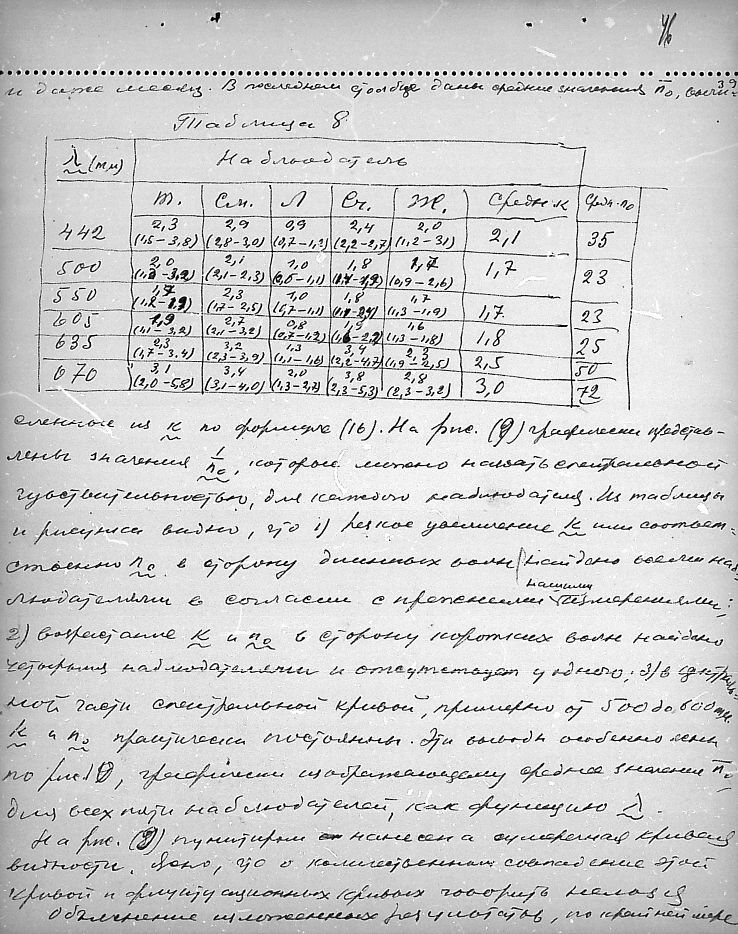 46
39
и даже месяц. В последнем столбце даны средние значения n₀, вычи-
Таблица 8
λ (mμ) Наблюдатель
Т. См. Л Сч. Ж. Средн. к Средн. n₀
442 2,3 (1,5–3,8) 2,9 (2,8–3,0) 0,9 (0,7–1,2) 2,4 (2,2–2,7) 2,0 (1,2–3,1) 2,1 35
500 2,0 2,1 (2,1–2,3) 1,0 1,8 1,7 (0,9–2,6) 1,7 23
550 1,7 2,3 (1,7–2,5) 1,0 (0,7–1,1) 1,8 1,7 (1,3–1,9) 1,7 23
605 1,9 (1,1–3,2) 2,7 (2,1–3,2) 0,8 (0,7–1,2) 1,9 1,6 (1,3–1,8) 1,8 25
635 2,3 (1,7–3,4) 3,2 (2,3–3,9) 1,3 (1,1–1,6) 3,4 (2,2–4,7) 2,3 (1,9–2,5) 2,5 50
670 3,1 (2,0–5,8) 3,4 (3,1–4,0) 2,0 (1,3–2,7) 3,8 (2,3–5,3) 2,8 (2,3–3,2) 3,0 72
сленные из к по формуле (16). На рис. (9) графически представ-
лены значения 1/n₀, которые можно назвать спектральной
чувствительностью, для каждого наблюдателя. Из таблицы
и рисунка видно, что 1) резкое увеличение к или соответ-
ственно n₀ в сторону длинных волн найдено всеми наб-
людателями в согласии с прежними нашими измерениями;
2) возрастание к и n₀ в сторону коротких волн найдено
четырьмя наблюдателями и отсутствует у одного; 3) в централь-
ной части спектральной кривой, примерно от 500 до 600 mμ
к и n₀ практически постоянны. Эти выводы особенно ясны
по рис. графически изображающему среднее значение n₀
для всех пяти наблюдателей, как функцию λ.
На рис. (9) пунктиром нанесена сумеречная кривая
видности. Ясно, что о количественном совпадение этой
кривой и флуктуационных кривых говорить нельзя
Объяснение изложенных результатов, по крайней мере